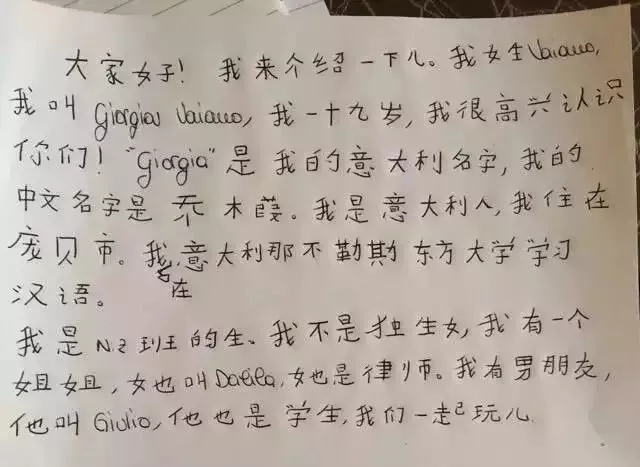 大家好！我来介绍一下儿。我姓Vaiano,
我叫 Giorgia Vaiano, 我一十九岁, 我很高兴认识
你们！"Giorgia"是我的意大利名字, 我的
中文名字是乔木葭。我是意大利人, 我住在
庞贝市。我在意大利那不勒斯东方大学学习
汉语。
我是 N.2 班的生。我不是独生女, 我有一个
姐姐, 她叫Dalila, 她是律师。我有男朋友,
他叫Giulio, 他也是学生, 我们一起玩儿